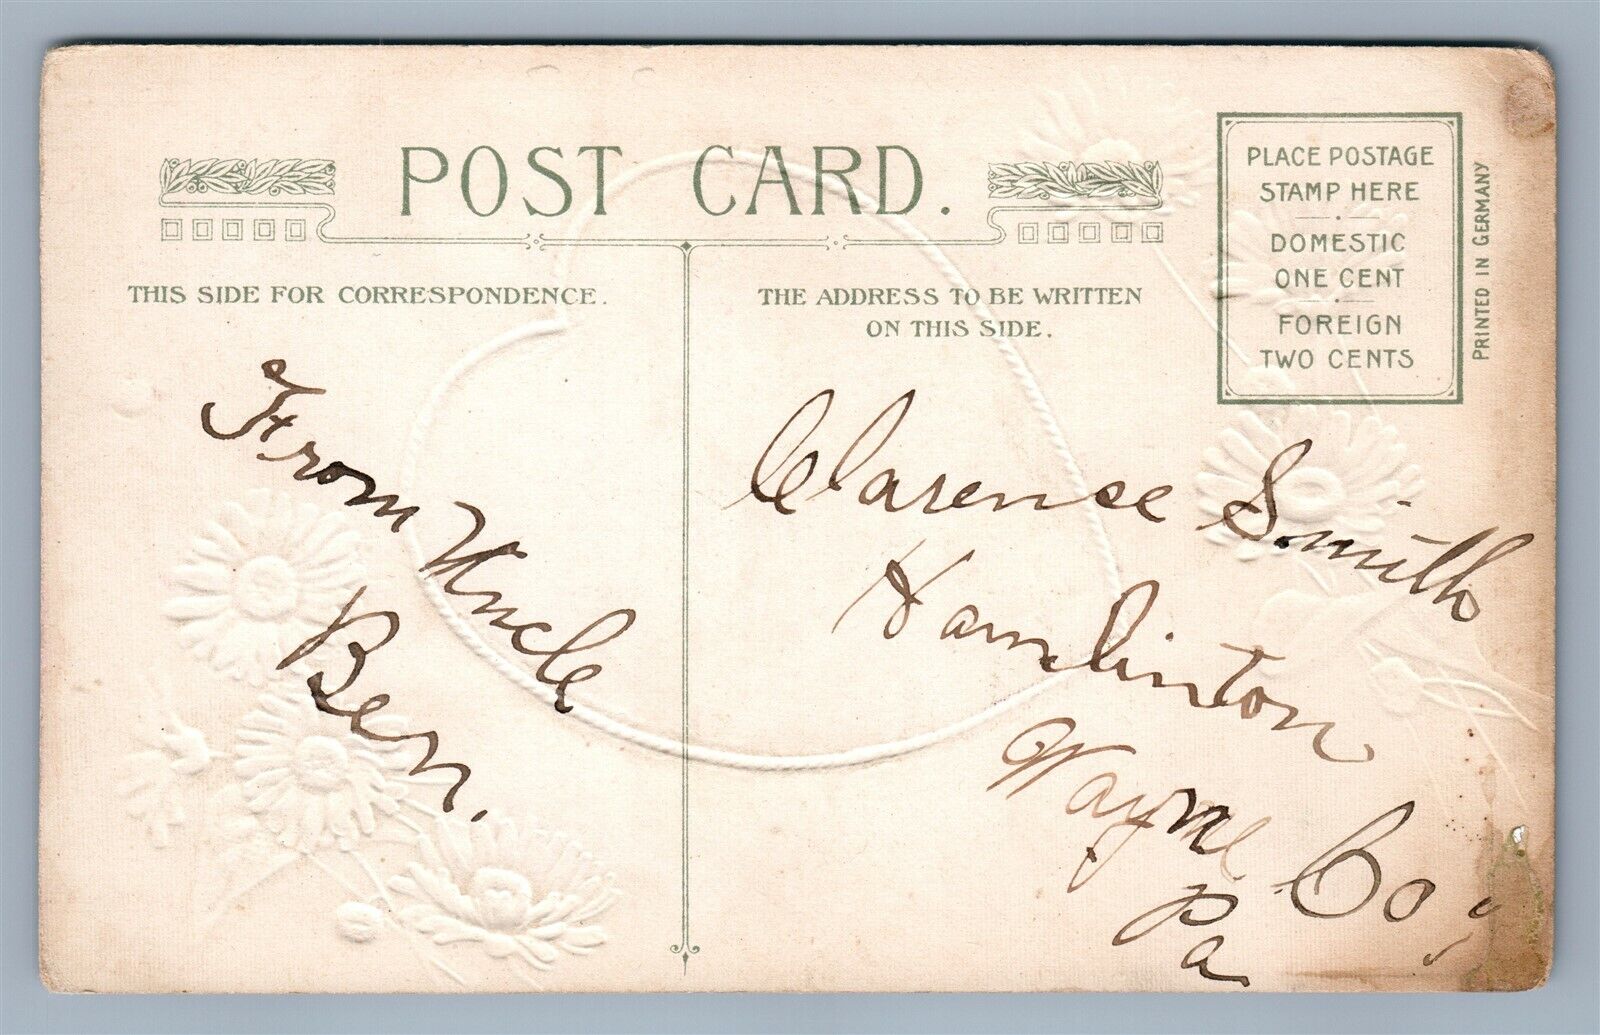 POST CARD.
THIS SIDE FOR CORRESPONDENCE.
THE ADDRESS TO BE WRITTEN
ON THIS SIDE.
PLACE POSTAGE
STAMP HERE
DOMESTIC
ONE CENT
FOREIGN
TWO CENTS
PRINTED IN GERMANY
From Uncle
Ben.
Clarence Smith
Hamlinton
Wayne Co
Pa